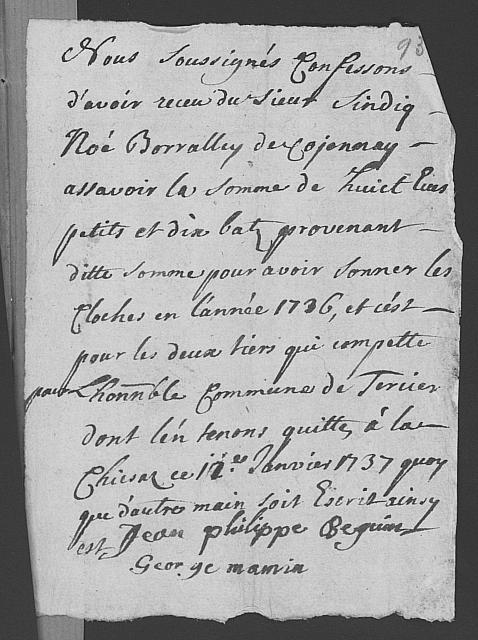 93
Nous soussignés Confessons
d'avoir receu du Sieur Sindiq
Noé Borralley de Cojonnay
assavoir la somme de huict Ecus
petits et dix batz provenant
ditte somme pour avoir sonner les
Cloches en l'année 1736, et cést
pour les deux tiers qui compette
pour L'honnble Commune de Tercier
dont lén tenons quitte, á la
Chiesaz ce 12.e Janvier 1737 quoy
que d'autre main soit Escrit ainsy
est Jean philippe Beguin
George mamin